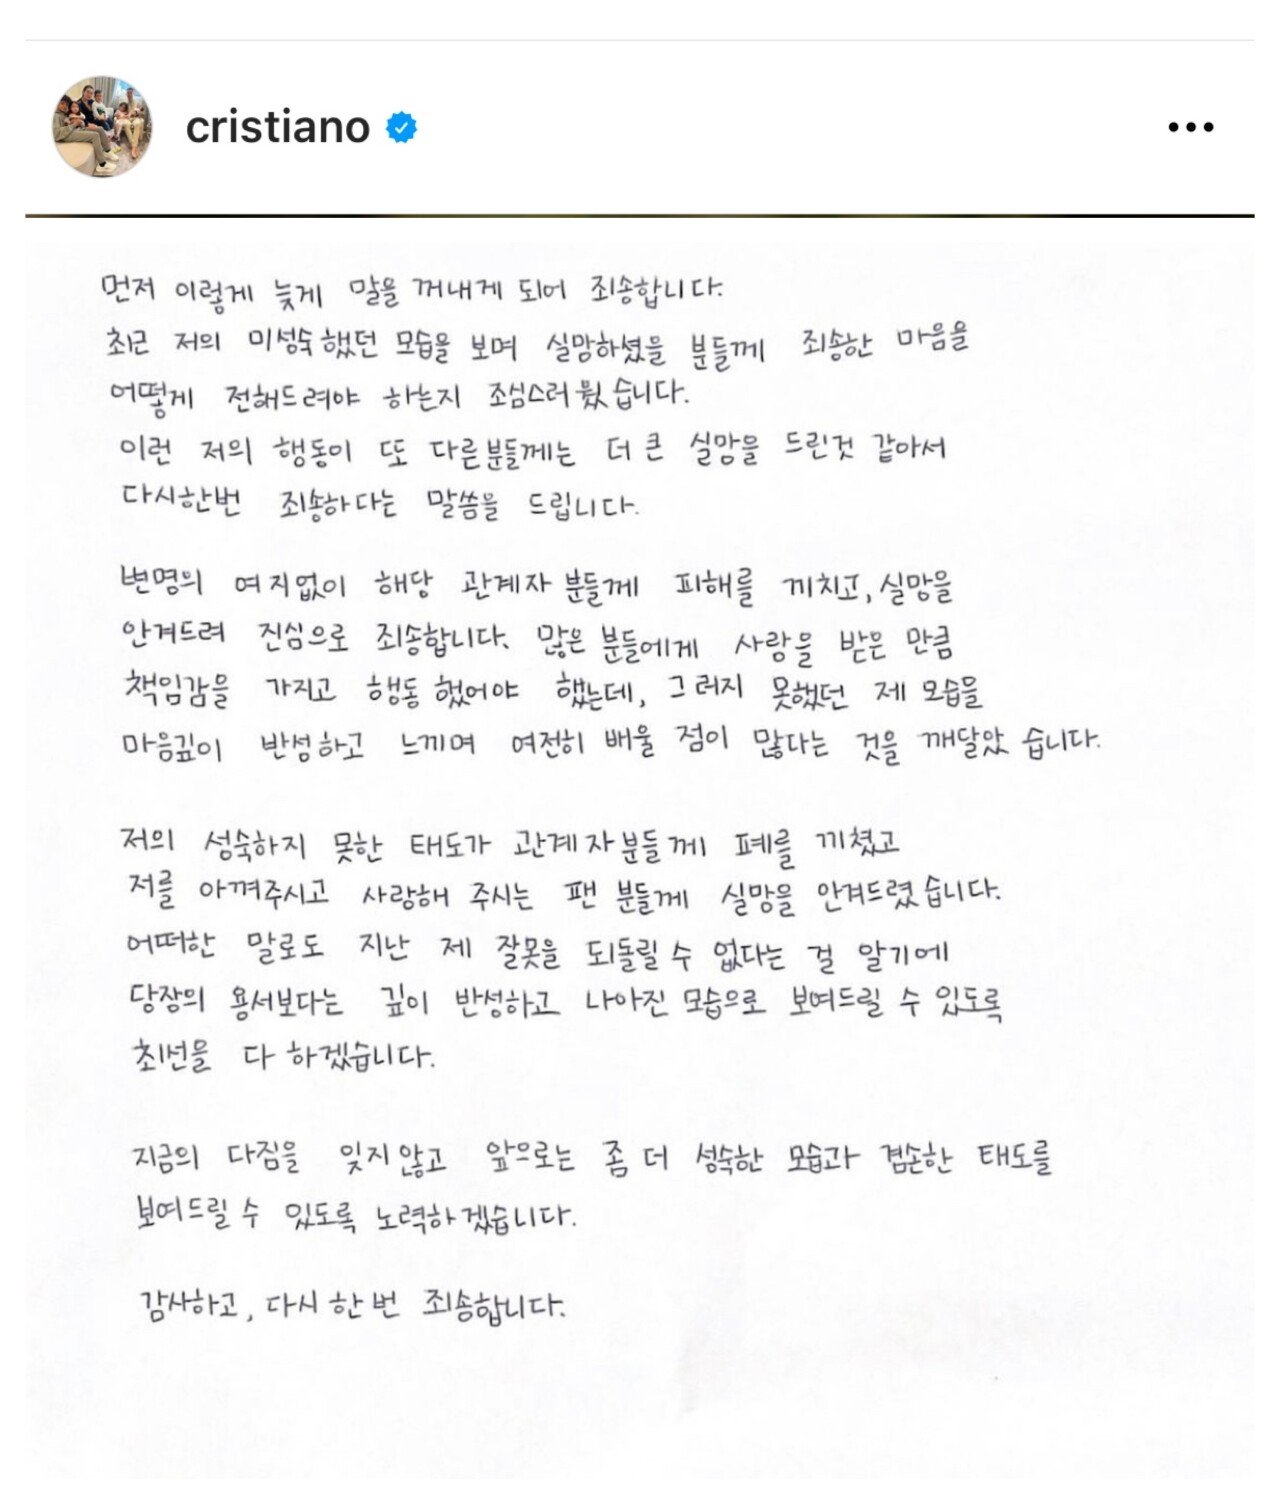 cristiano
먼저 이렇게 늦게 말을 꺼내게 되어 죄송합니다.
최근 저의 미성숙했던 모습을 보며 실망하셨을 분들께 죄송한 마음을
어떻게 전해드려야 하는지 조심스러웠습니다.
이런 저의 행동이 또 다른분들께는 더 큰 실망을 드린것 같아서
다시한번 죄송하다는 말씀을 드립니다.
변명의 여지없이 해당 관계자 분들께 피해를 끼치고, 실망을
안겨드려 진심으로 죄송합니다. 많은 분들에게 사랑을 받은 만큼
책임감을 가지고 행동 했었어야 했는데, 그러지 못했던 제 모습을
마음깊이 반성하고 느끼며 여전히 배울 점이 많다는 것을 깨달았습니다.
저의 성숙하지 못한 태도가 관계자분들께 폐를 끼쳤고
저를 아껴주시고 사랑해 주시는 팬 분들께 실망을 안겨드렸습니다.
어떠한 말로도 지난 제 잘못을 되돌릴 수 없다는 걸 알기에
당장의 용서보다는 깊이 반성하고 나아진 모습으로 보여드릴 수 있도록
최선을 다 하겠습니다.
지금의 다짐을 잊지않고 앞으로는 좀 더 성숙한 모습과 겸손한 태도를
보여드릴 수 있도록 노력하겠습니다.
감사하고, 다시 한 번 죄송합니다.